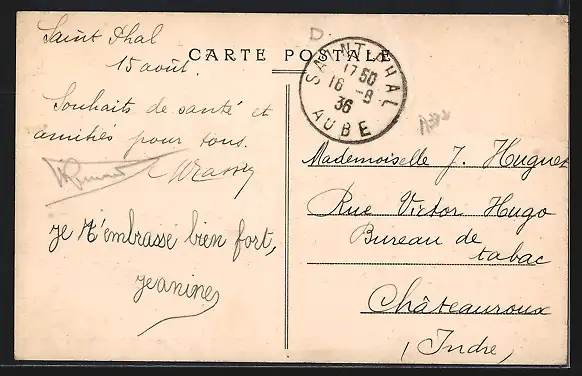 Saint Phal
15 août.
CARTE POSTALE
D
SAINT-PHAL
1750
16 -8
36
AUBE
Souhaits de santé et
amitiés pour tous.
je t'embrasse bien fort,
jeanine
Mademoiselle J. Huguet
Rue Victor Hugo
Bureau de
tabac
Châteauroux
(Indre)